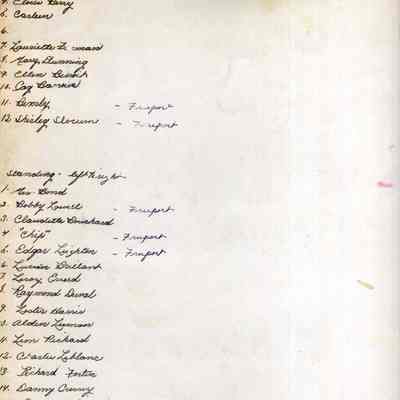 4. Elsie Barry
5. Carleen
6.
7. Lauriette
8. Mary Dunning
9. Ellen Benoit
10. Kay Barrie
11. Beverly - Freeport
12. Shirley Slocum - Freeport
Standing - left to right
1. Mr. Bond
2. Bobby Lowell - Freeport
3. Claudette Bouchard
4. "Chip" - Freeport
5. Edgar Leighton - Freeport
6. Lucien Gallant
7. Leroy
8. Raymond Duval
9. Lester Harris
10. Alden
11. Leon Richard
12. Charles Leblanc
13. Richard Porter
14. Danny Creamy